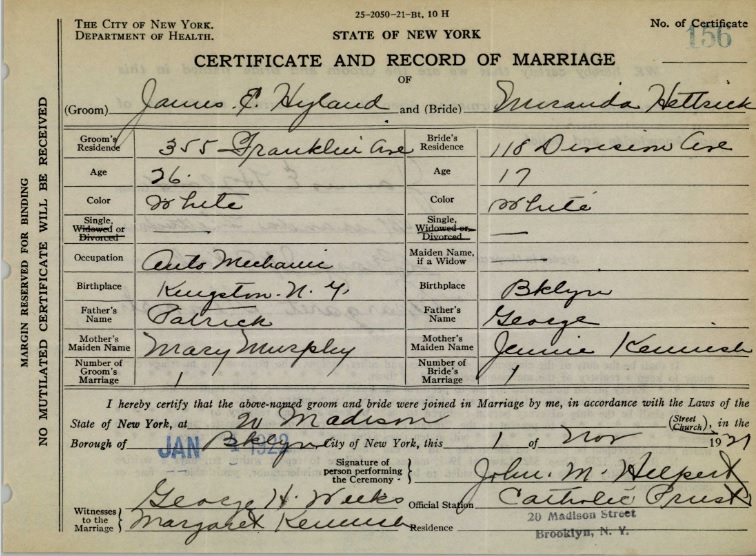 25-2050-21-Bt, 10 H
THE CITY OF NEW YORK.
DEPARTMENT OF HEALTH.
STATE OF NEW YORK
No. of Certificate
156
CERTIFICATE AND RECORD OF MARRIAGE
OF
(Groom) James E. Hyland and (Bride) Emiranda Hettrick
Groom's Residence 355 Franklin Ave Bride's Residence 118 Division Ave
Age 26. Age 17
Color White Color White
Single, Widowed or Divorced — Single, Widowed or Divorced —
Occupation Auto Mechanic Maiden Name, if a Widow —
Birthplace Kingston. N. Y. Birthplace Bklyn
Father's Name Patrick Father's Name George
Mother's Maiden Name Mary Murphy Mother's Maiden Name Jennie Kennish
Number of Groom's Marriage 1 Number of Bride's Marriage 1
I hereby certify that the above-named groom and bride were joined in Marriage by me, in accordance with the Laws of the
State of New York, at 20 Madison (Street Church), in the
Borough of Bklyn City of New York, this 1 of Nov 1921
JAN 1922
Signature of person performing the Ceremony - John. M. Hilpert
Witnesses to the Marriage George H. Weeks
Margaret Kennish
Official Station Catholic Priest
Residence 20 Madison Street
Brooklyn, N. Y.
MARGIN RESERVED FOR BINDING
NO MUTILATED CERTIFICATE WILL BE RECEIVED